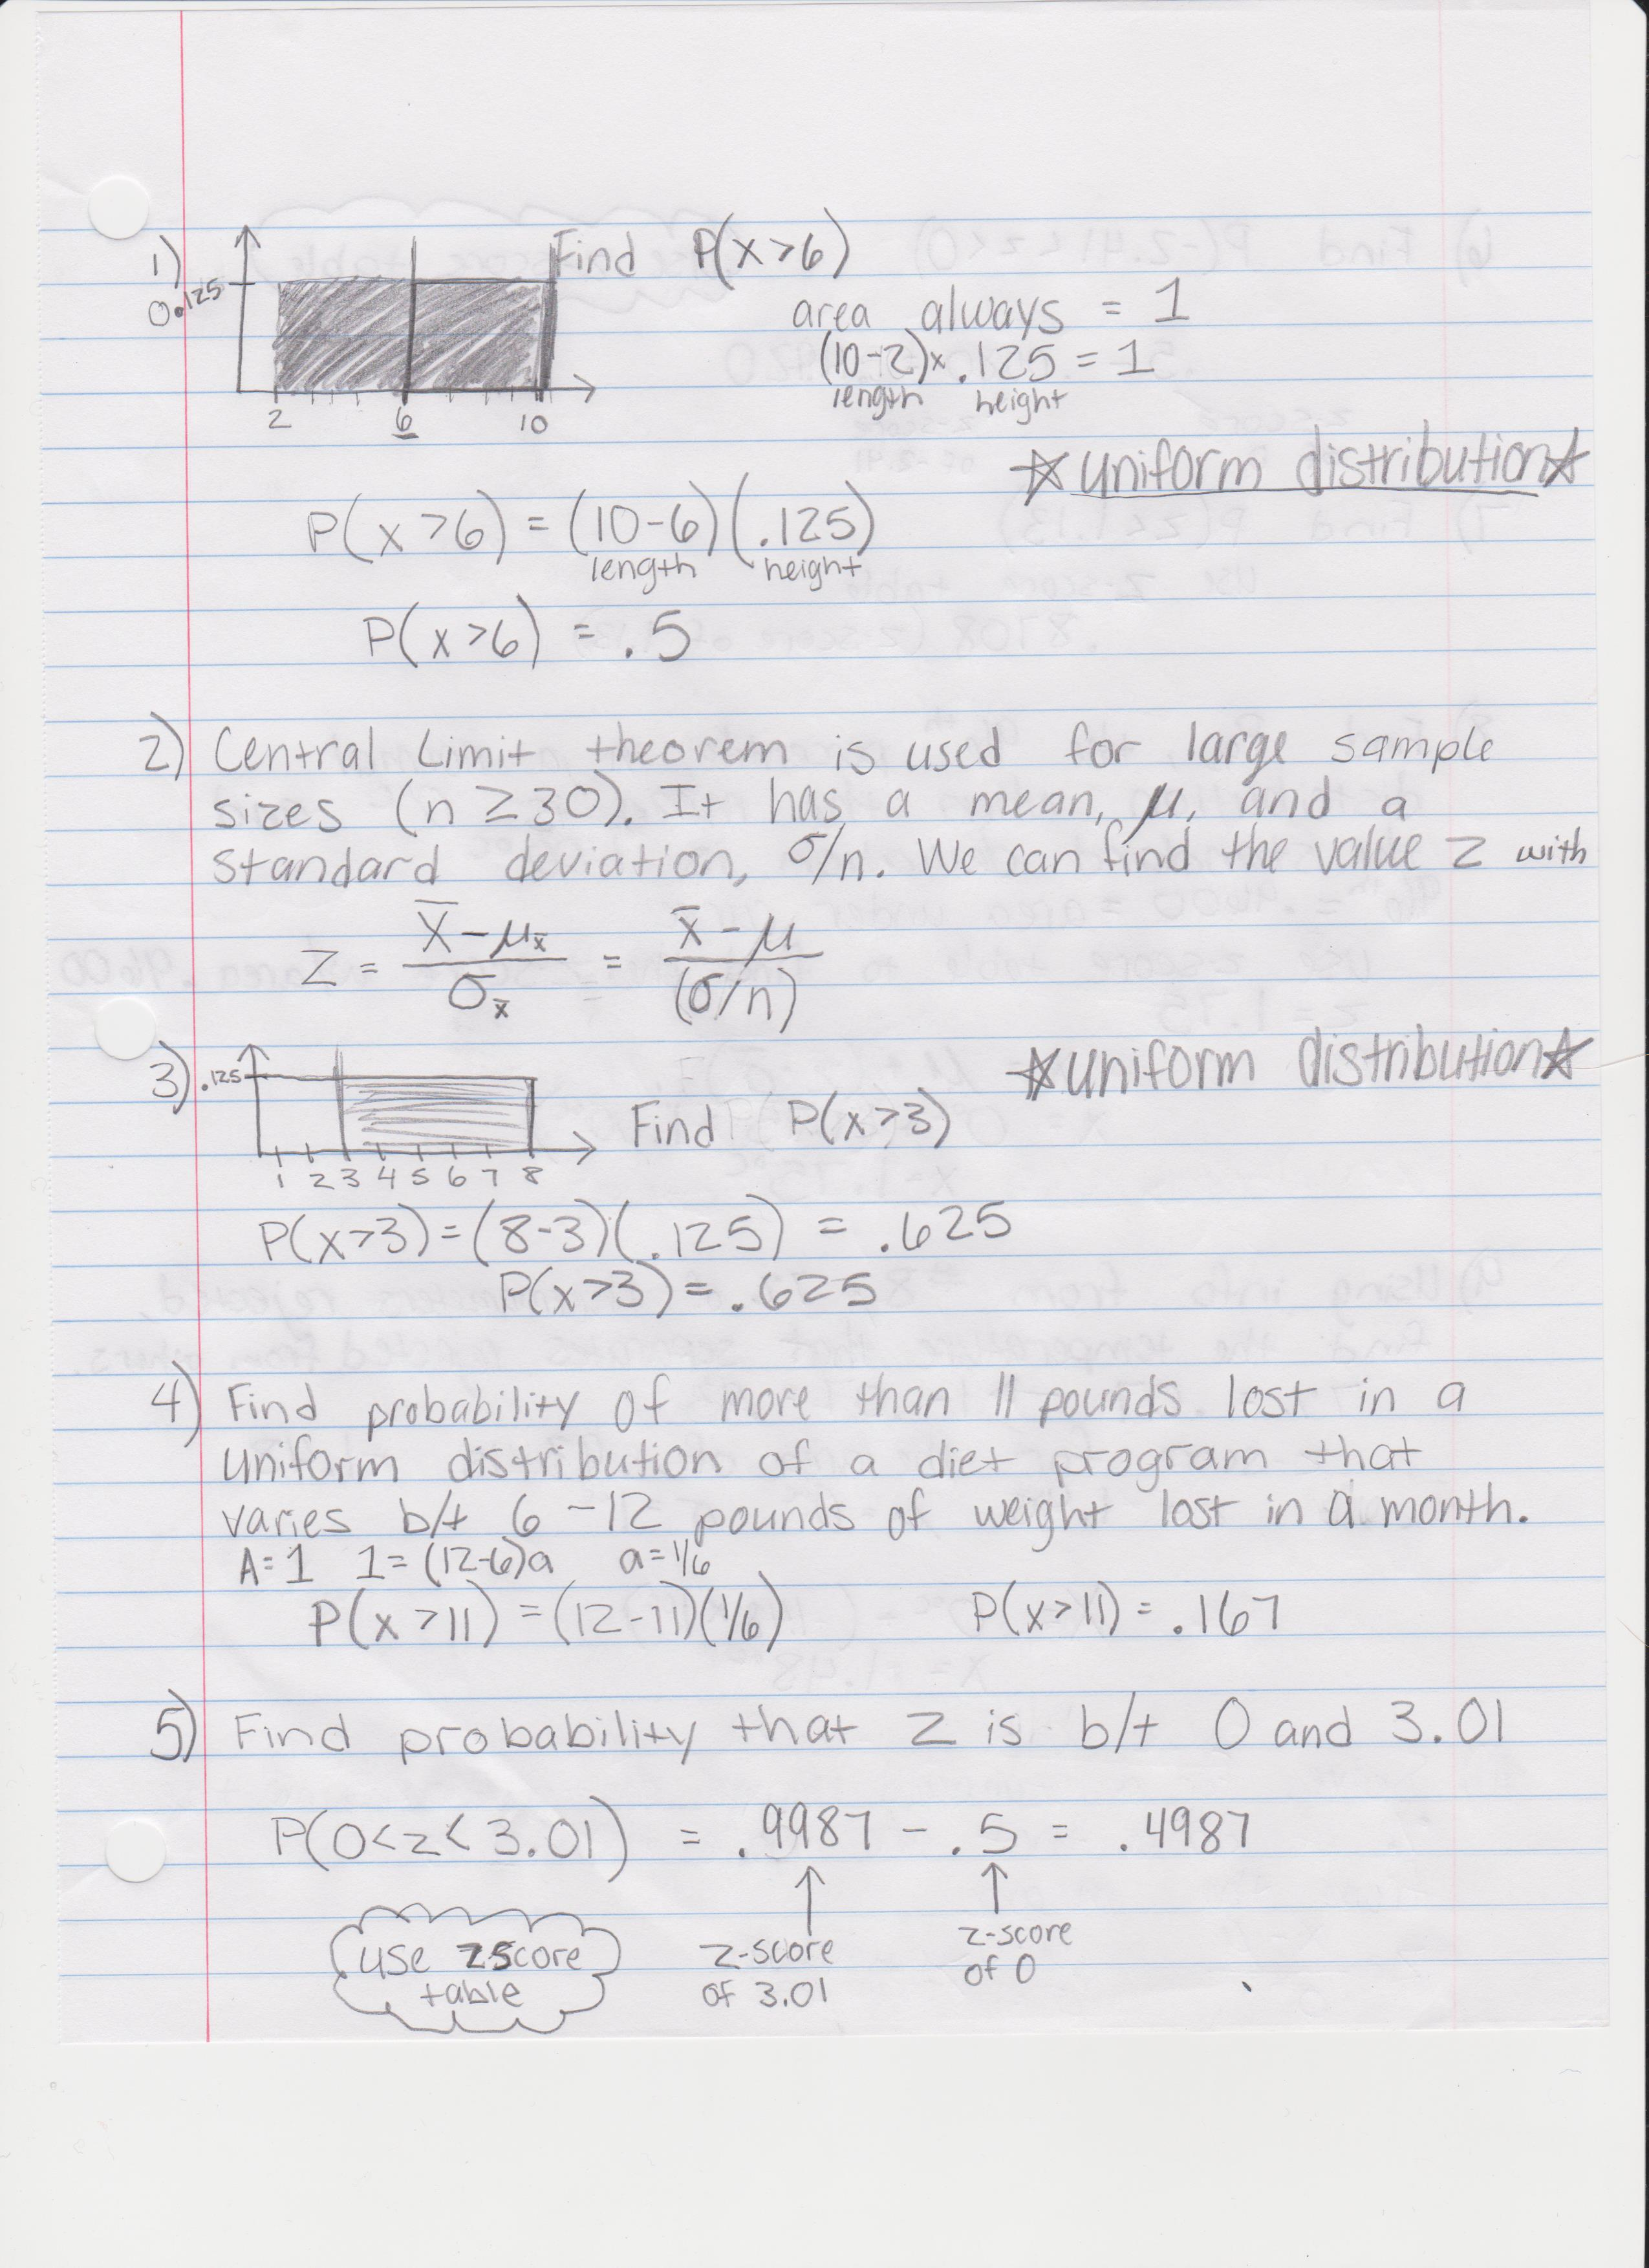 1)
0.125
Find P(x>6)
area always = 1
(10-2)x .125 = 1
length height
2 6 10
☆uniform distribution☆
P(x>6) = (10-6)(.125)
length height
P(x>6) = .5
2) Central Limit theorem is used for large sample
sizes (n ≥30). It has a mean, μ, and a
standard deviation, σ/n. We can find the value z with
z = (x̄ - μx̄)/σx̄ = (x̄ - μ)/(σ/n)
☆uniform distribution☆
3) .125
Find P(x>3)
1 2 3 4 5 6 7 8
P(x>3) = (8-3)(.125) = .625
P(x>3) = .625
4) Find probability of more than 11 pounds lost in a
uniform distribution of a diet program that
varies b/t 6-12 pounds of weight lost in a month.
A=1 1=(12-6)a a=1/6
P(x>11) = (12-11)(1/6) P(x>11) = .167
5) Find probability that z is b/t 0 and 3.01
P(0<z<3.01) = .9987 - .5 = .4987
use z score
table
z-score
of 3.01
z-score
of 0